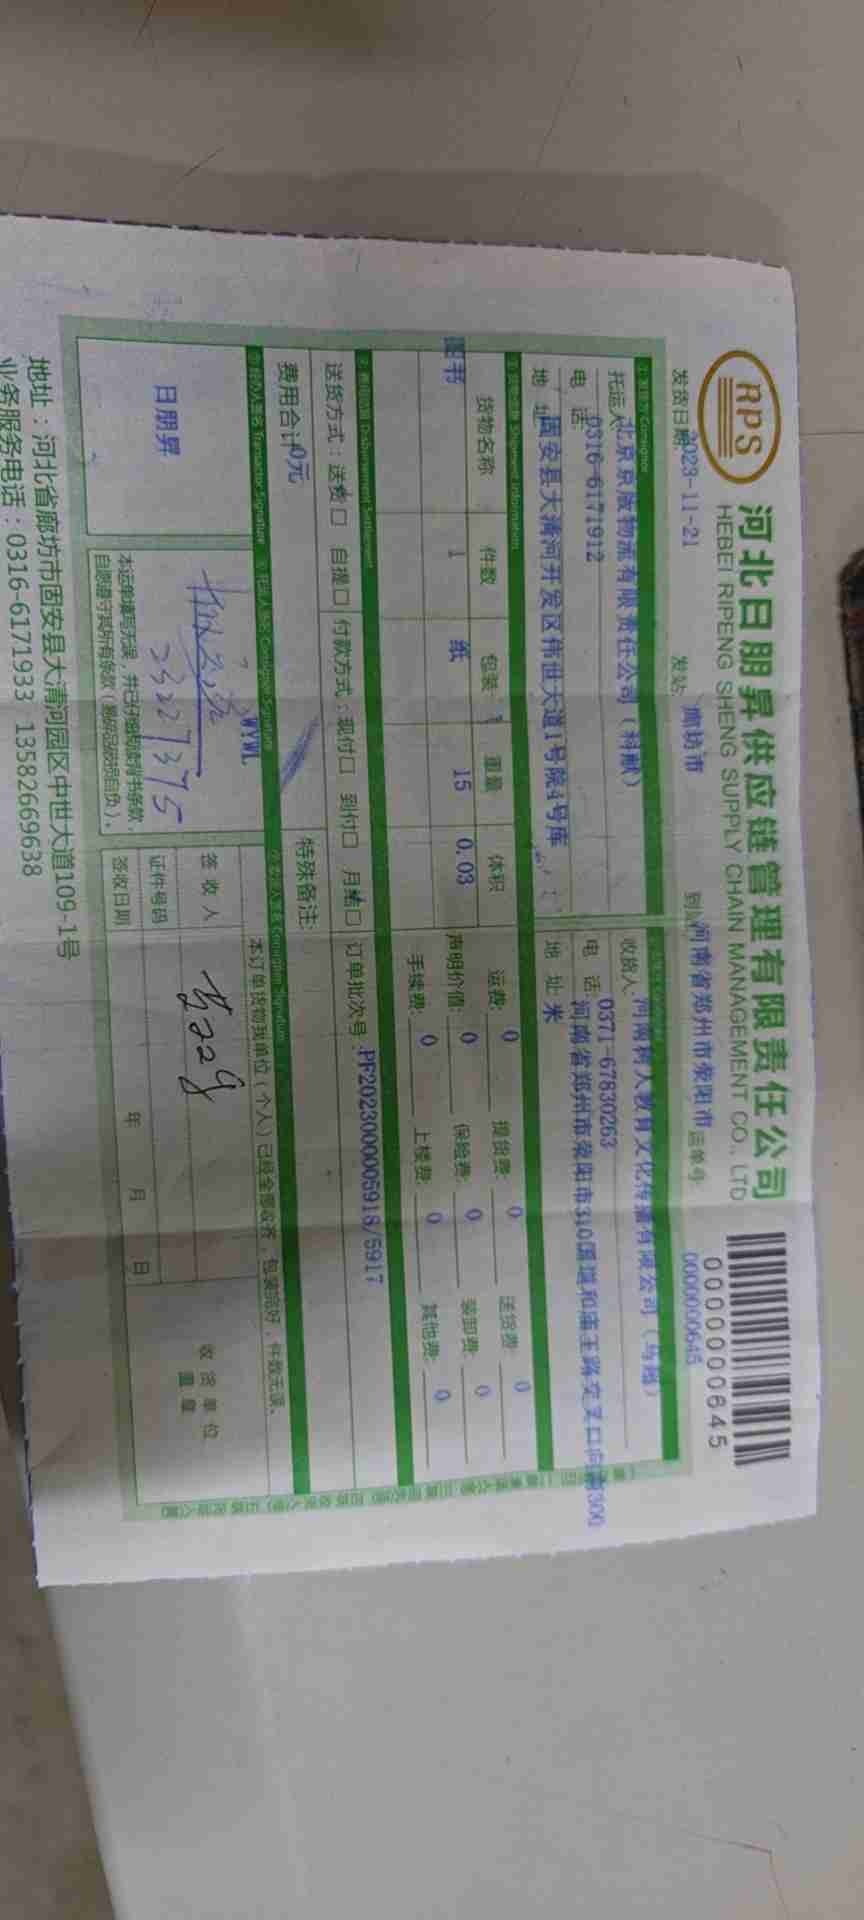 RPS
河北日朋昇供应链管理有限责任公司
HEBEI RIPENG SHENG SUPPLY CHAIN MANAGEMENT CO., LTD
0000000645
发货日期 2023-11-21 发站: 廊坊市 到站 河南省郑州市荥阳市 运单号: 0000000645
Consignor
托运人 北京京版物流有限责任公司(科献) 收货人: 河南树人教育文化传播有限公司
电 话: 0316-6171912 电 话: 0371-67830263
地 址: 固安县大清河开发区伟世大道1号院4号库 地 址: 河南省郑州市荥阳市310国道和庙王路交叉口向南300
米
Shipment Information
货物名称 件数 包装 重量 体积 运费: 0 提货费: 0 送货费: 0
图书 1 纸 15 0.03 声明价值: 0 保险费: 0 装卸费: 0
手续费: 0 上楼费: 0 其他费: 0
Disbursement Settlement
送货方式: 送货□ 自提□ 付款方式: 现付□ 到付□ 月结□ 订单批次号: PF2023000005918/5917
费用合计 0元 特殊备注:
经办人签名 Transactor Signature 托运人签名 Consignor Signature Consignee Signature
日朋昇 WYWL 本订单货物我单位(个人)已经全部收齐,包装完好,件数无误。
2327375
签收人 收货单位
盖章
证件号码
签收日期 年 月 日
本运单填写无误,并已仔细阅读背书条款,
自愿遵守其所有条款(易碎品破损自负)。
地址:河北省廊坊市固安县大清河园区中世大道109-1号
业务服务电话:0316-6171933 13582669638